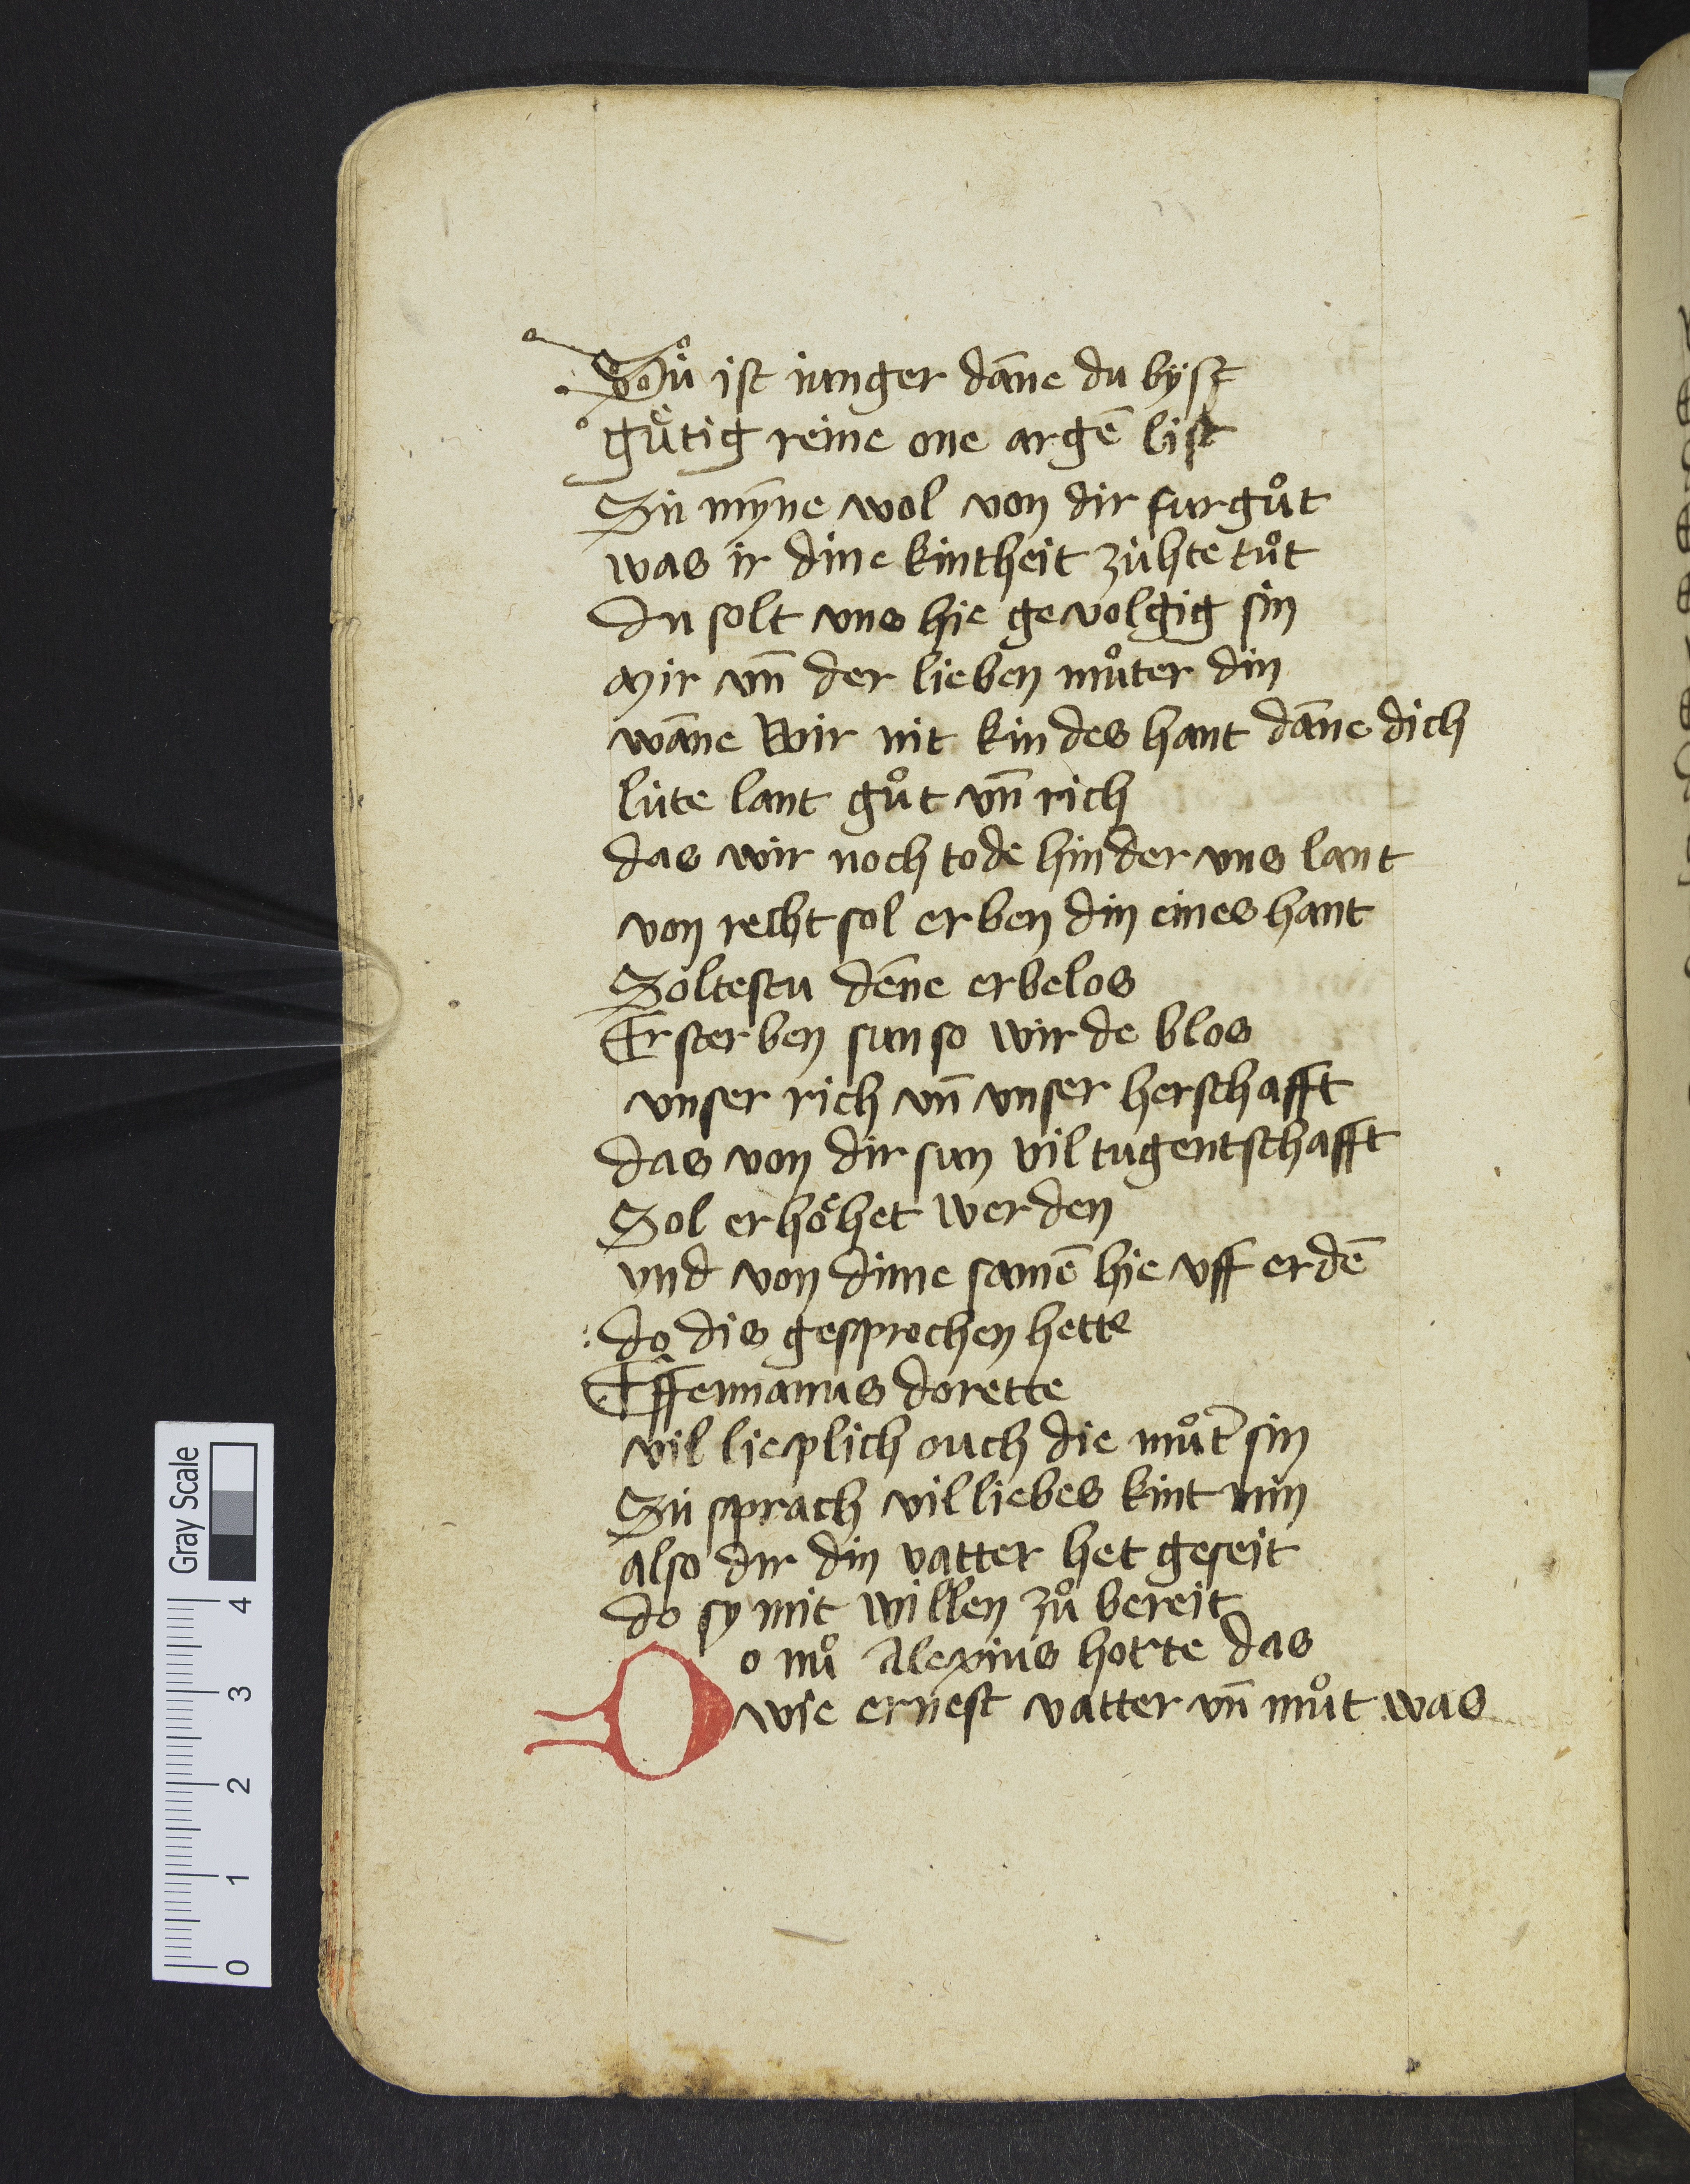 Sü ist iunger dāne du bÿst
gu̇̊tig reine one argē list
Sü mȳne wol von dir fur gůt
was ir dine kintheit zühte tůt
du solt vns hie gevolgig sin
mir vn̄ der lieben můter din
wāne wir nit kindes hant dāne dich
lüte lant gůt vn̄ rich
das wir noch tode hinder vns lant
von recht sol erben din eines hant
Soltestu dēne erbelos
Ersterben sun so wirde blos
vnser rich vn̄ vnser herschafft
das von dir sun vil tugentschafft
Sol erhöhet werden
vnd von dime samē hie vff erdē
do dis gesprochen hette
Effemianus do rette
vil lieplich ouch die můt̄ sin
Sü sprach vil liebes kint min
also dir din vatter het geseit
do sy mit willen zů bereit
Do nů Alexius horte das
wie ernest vatter vn̄ můt was
Gray Scale
4
3
2
1
0